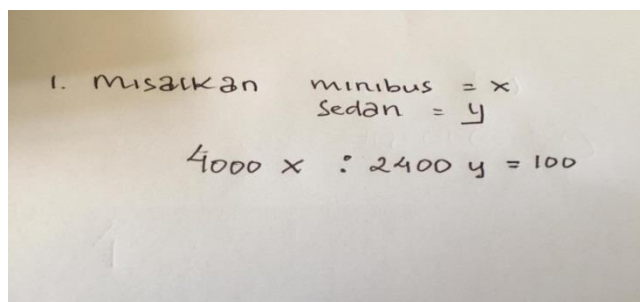 1. Misalkan minibus = x
Sedan = y
4000 x : 2400 y = 100